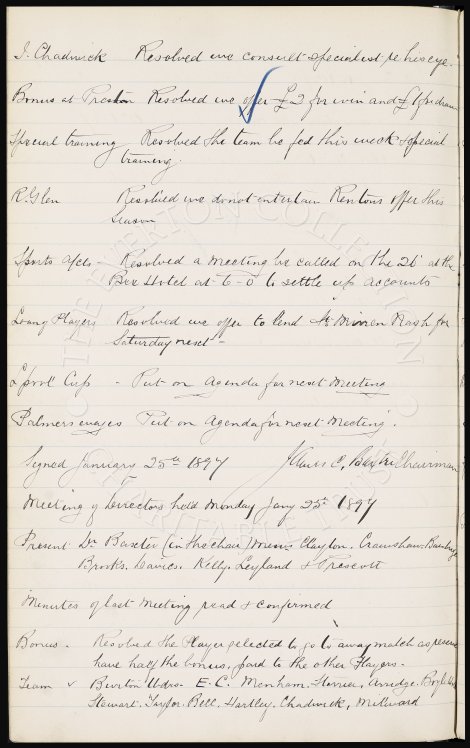 J. Chadwick Resolved we consult specialist re his eye.
Bonus at Preston Resolved we offer £2 for win and £1 for draw
Special training Resolved the team be fed this week & special
training.
R. Glen Resolved we do not entertain Rentons offer this
season
Sports a/cs - Resolved a meeting be called on the 26th at the
Bee Hotel at 6-0 to settle up accounts
Loang Players Resolved we offer to lend St Mirren Nash for
Saturday next -
L'pool Cup - Put on Agenda for next Meeting
Palmers wages Put on Agenda for next Meeting.
Signed January 25th 1897 James C. Baxter Chairman
Meeting of Directors held Monday Jany 25th 1897
Present Dr Baxter (in the chair) Messrs Clayton. Crawshaw. Bainbridge
Brooks. Davies. Kelly. Leyland & Prescott
Minutes of last meeting read & confirmed
Bonus. Resolved the Player selected to go to away match as reserve
have half the bonus, paid to the other Players.
Team v Burton Wdrs - E.C. Menham. Storrier, Arridge. Boyle
Stewart. Taylor. Bell. Hartley. Chadwick, Milward
THE EVERTON COLLECTION
CHARITABLE TRUST